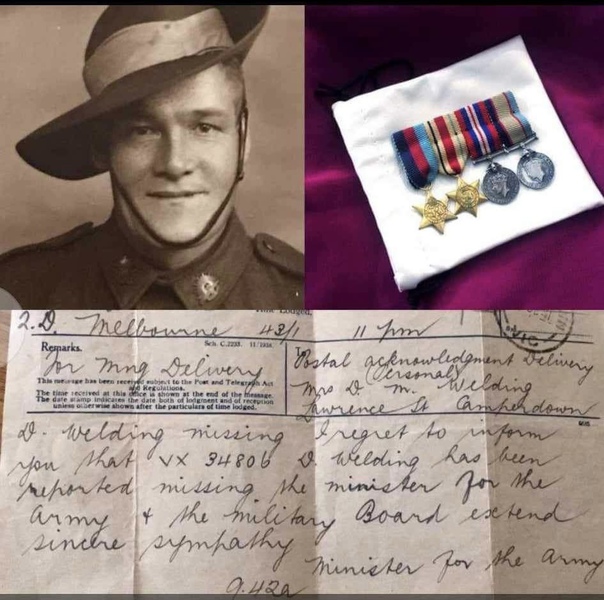 Time Lodged,
2.D. Melbourne 43/1 11 pm
VIC
Remarks.
Sch. C.2233. 11/1938.
For Mng Delivery
This message has been received subject to the Post and Telegraph Act
and Regulations.
The time received at this office is shown at the end of the message.
The date stamp indicates the date both of lodgment and of reception
unless otherwise shown after the particulars of time lodged.
Postal acknowledgment Delivery
Personal
Mrs D. M. Welding
Lawrence St Camperdown
D. Welding missing I regret to inform
you that VX 34806 D. Welding has been
reported missing the minister for the
Army & the Military Board extend
sincere sympathy
Minister for the Army
9.42a